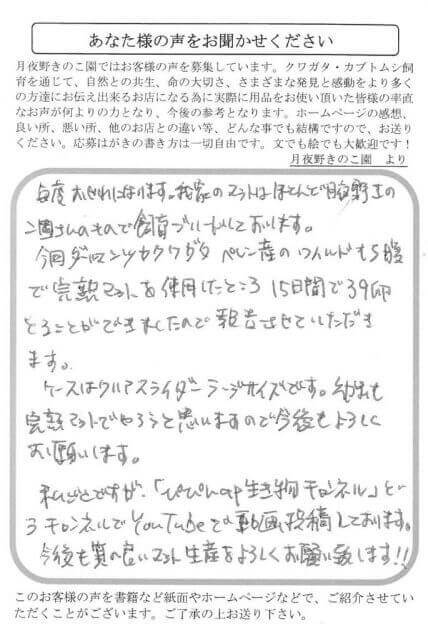 あなた様の声をお聞かせください
月夜野きのこ園ではお客様の声を募集しています。クワガタ・カブトムシ飼
育を通じて、自然との共生、命の大切さ、さまざまな発見と感動をより多く
の方達にお伝え出来るお店になる為に実際に用品をお使い頂いた皆様の率直
なお声が何よりの力となり、今後の参考となります。ホームページの感想、
良い所、悪い所、他のお店との違い等、どんな事でも結構ですので、お送り
ください。応募はがきの書き方は一切自由です。文でも絵でも大歓迎です！
月夜野きのこ園　より
毎度お世話になります。我家のマットはほとんど月夜野きの
こ園さんのもので飼育ブリードしております。
今回ダールマンツヤクワガタ ペレン産のワイルド
で完熟マットを使用したところ 15日間で39卵
とることができましたので報告させていただき
ます。
ケースはクリアスライダーラージサイズです。幼虫も
完熟マットでやろうと思いますので今後もよろしく
お願いします。
私ごとですが、「ぴぴんの生き物チャンネル」とい
うチャンネルでYouTubeで動画投稿しております。
今後も質の良いマット生産をよろしくお願い致します!!
このお客様の声を書籍など紙面やホームページなどで、ご紹介させてい
ただくことがございます。ご了承の上お送り下さい。